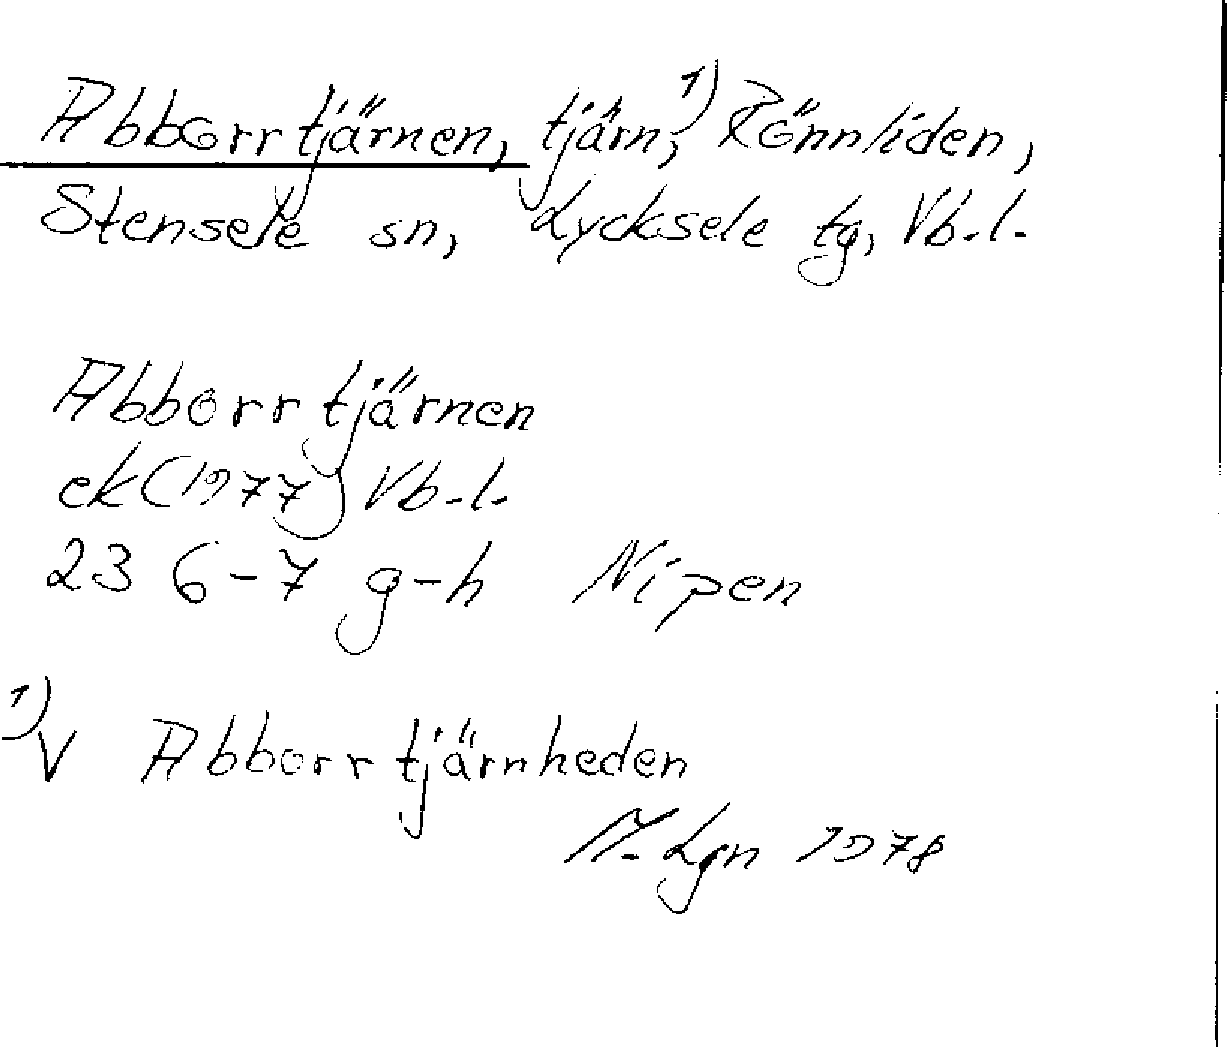 Abborrtjärnen, tjärn,1) Rönnliden,
Stensele sn, Lycksele tg, Vb.l.
Abborrtjärnen
ek (1977) Vb.l.
23 6-7 g-h Nipen
1) V Abborrtjärnheden
M. Lgn 1978